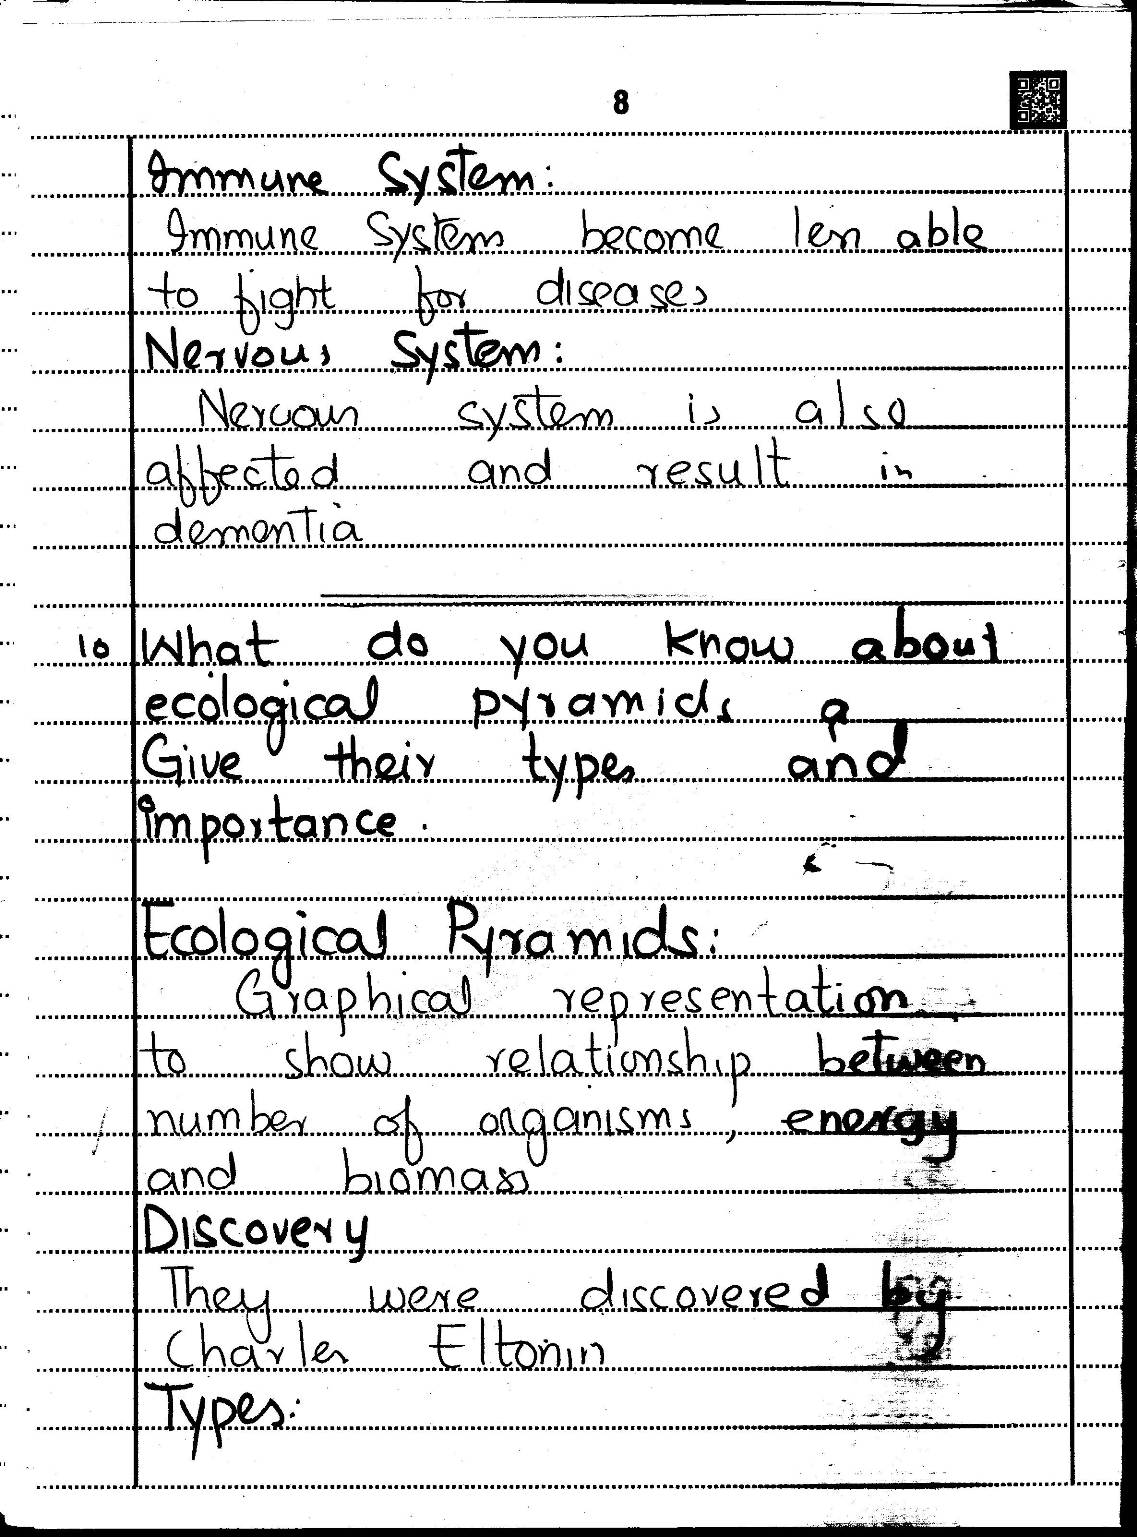 8
Immune System:
Immune System become less able
to fight for diseases
Nervous System:
Nervous system is also
affected and result in
dementia
10 What do you know about
ecological pyramids ?
Give their types and
importance.
Ecological Pyramids:
Graphical representation
to show relationship between
number of organisms, energy
and biomass
Discovery
They were discovered by
Charles Eltonin
Types: